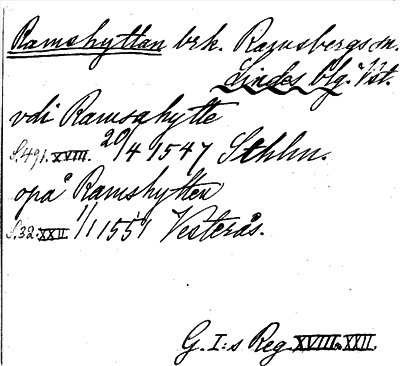 Ramshyttan brk. Ramsbergs sn.
Lindes blg. Vst.
vdi Ramsahytte
S. 491. XVIII. 20/4 1547 Sthlm.
opå Ramshytten
S. 32. XXII 1/1 1551 Vesterås.
G. I:s Reg. XVIII. XXII.